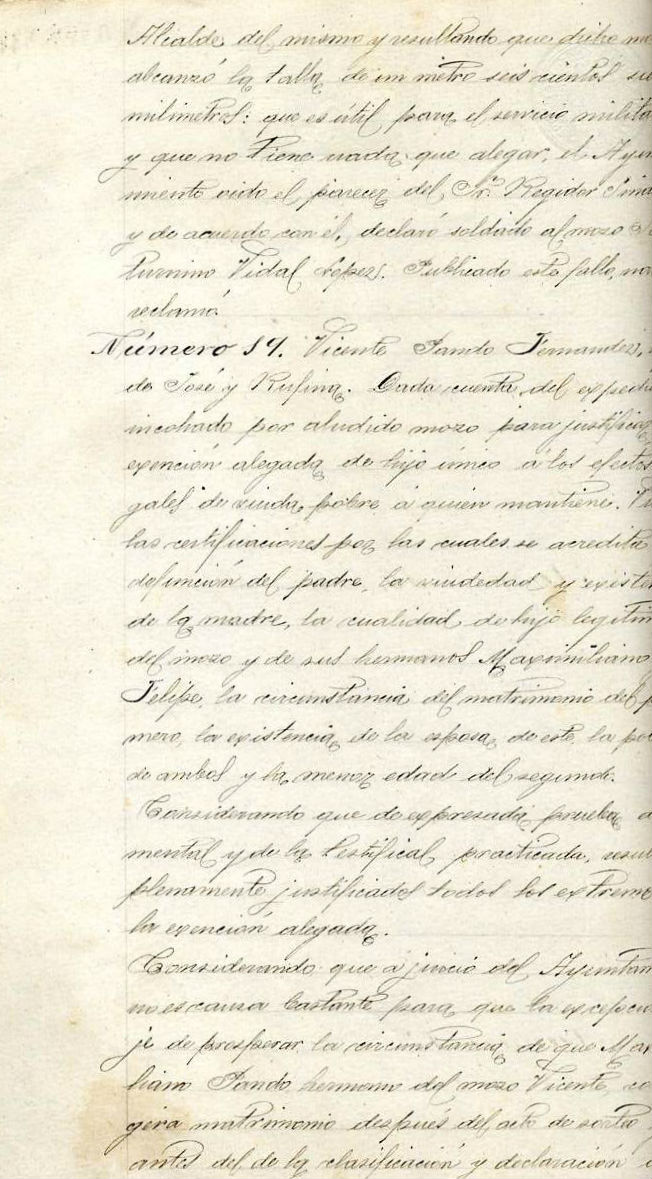 Alcalde del mismo y resultando que dicho mo
alcanzó la talla de un metro seis cientos
milimetros: que es útil para el servicio milita
y que no tiene nada que alegar, el Ayun
miento oido el parecer del Sr. Regidor Sind
y de acuerdo con él, declaró soldado al mozo
turnino Vidal Lopez. Publicado este fallo, no
reclamó.
Número 19. Vicente Pando Fernandez,
de José y Rufina. Dada cuenta del expedi
incohado por aludido mozo para justificar
exención alegada de hijo único á los efectos
gales de viuda pobre á quien mantiene.
las certificaciones por las cuales se acredita
defunción del padre, la viudedad y existen
de la madre, la cualidad de hijo legitim
del mozo y de sus hermanos Maximiliano
Felipe, la circunstancia del matrimonio del p
mero, la existencia de la esposa de este, la po
de ambos y la menor edad del segundo.
Considerando que de expresada prueba
mental y de la testifical practicada, resul
plenamente justificados todos los extremo
la exención alegada.
Considerando que á juicio del Ayuntam
no es causa bastante para que la excepci
je de prosperar la circunstancia de que Ma
liano Pando hermano del mozo Vicente, co
gera matrimonio después del acto de sorteo
antes del de la clasificación y declaración